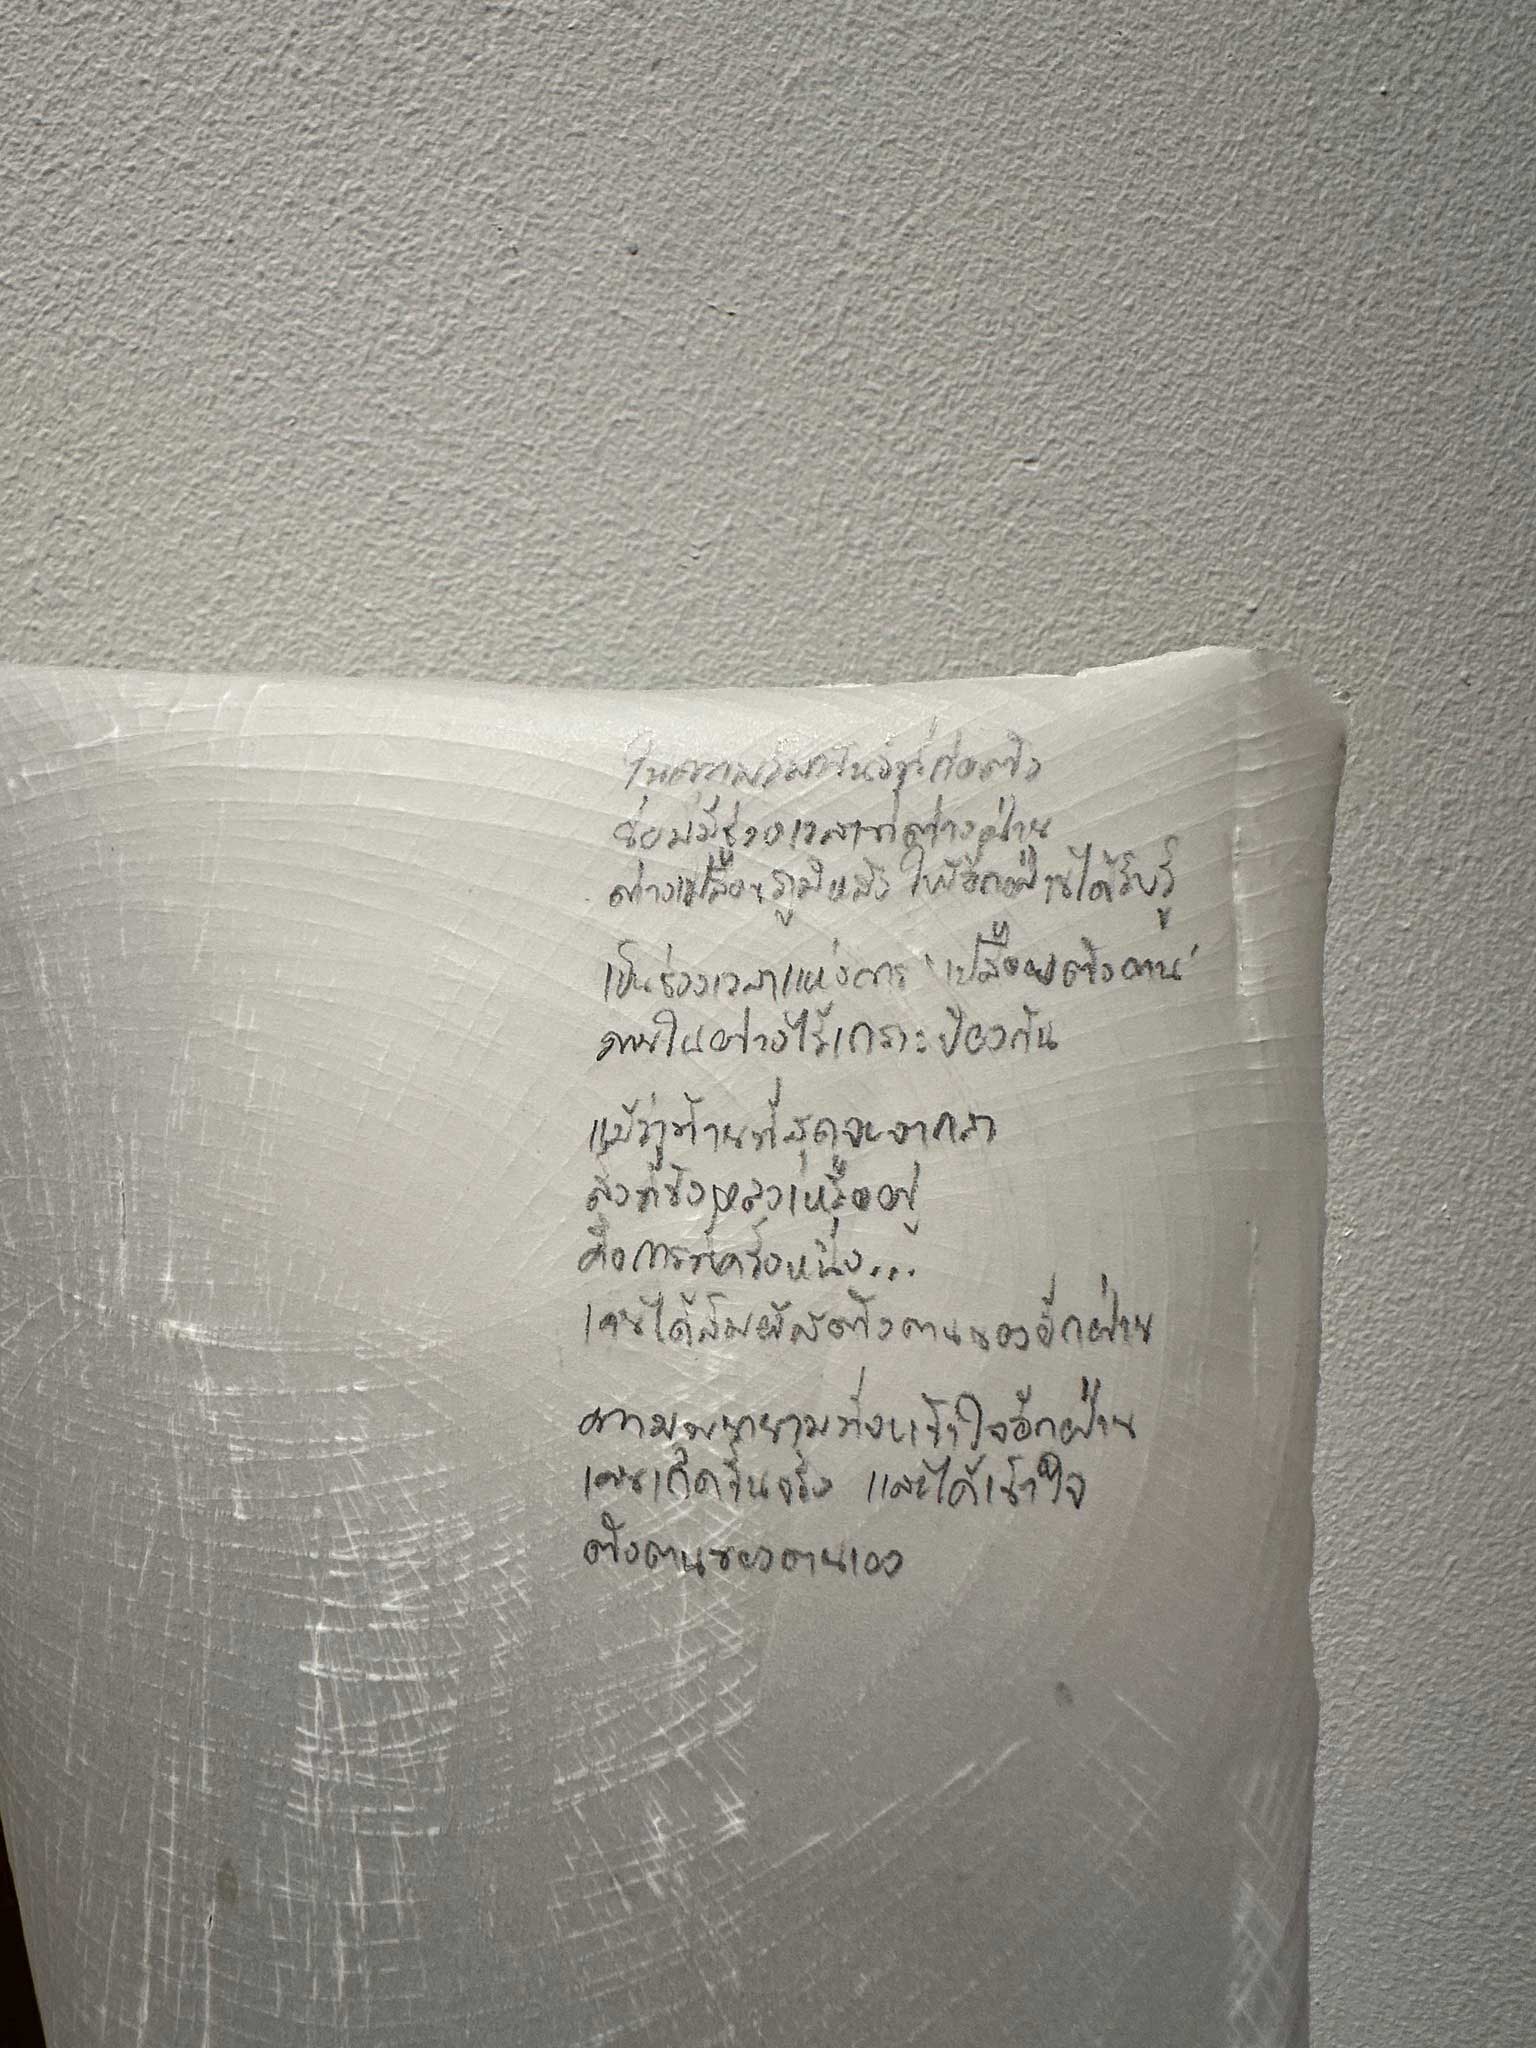 ในความสัมพันธ์ที่ก่อตัว
ย่อมมีช่วงเวลาที่ต่างฝ่าย
ต่างเปลือยภูมิหลัง ให้อีกฝ่ายได้รับรู้
เป็นช่วงเวลาแห่งการ 'เปลือยตัวตน'
ภายในอย่างไร้เกราะป้องกัน
แม้ว่าท้ายที่สุดจะจากลา
สิ่งที่ยังหลงเหลืออยู่
คือการที่ครั้งหนึ่ง...
เคยได้สัมผัสตัวตนของอีกฝ่าย
ความพยายามที่จะเข้าใจอีกฝ่าย
เคยเกิดขึ้นจริง และได้เข้าใจ
ตัวตนของตนเอง